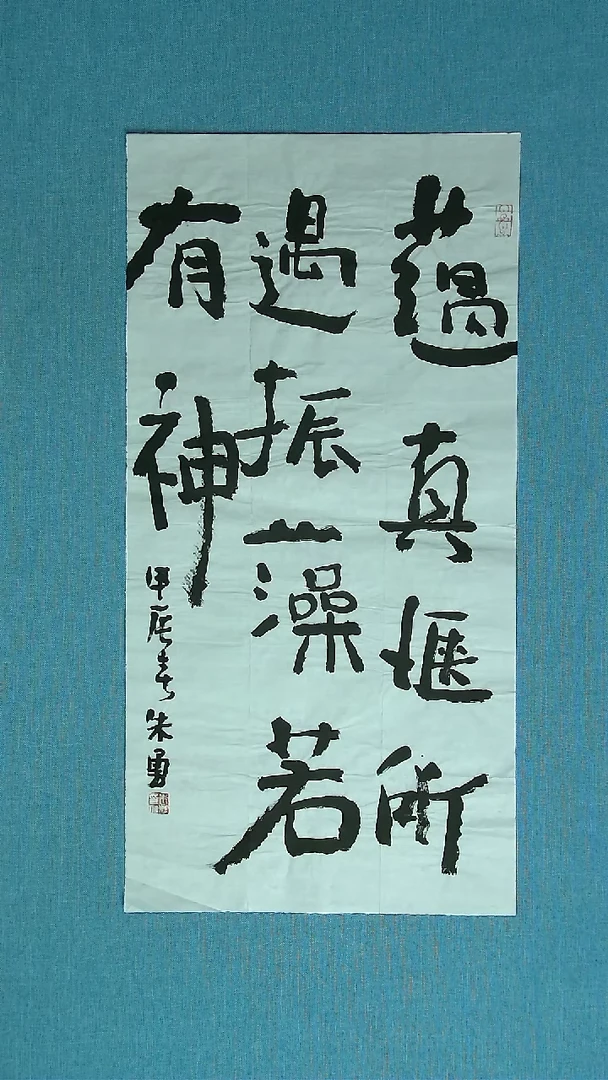 蕴真愜所
遇振藻若
有神
甲辰春朱勇